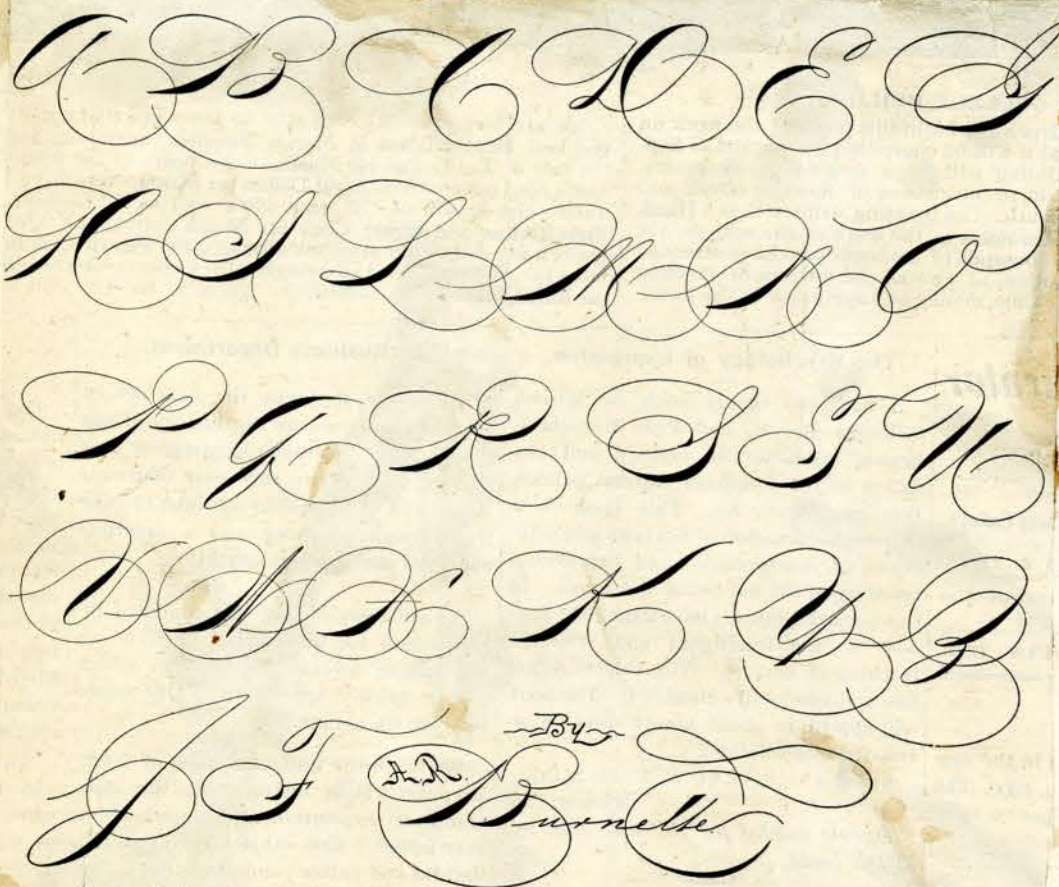 A B C D E G
H I L M N O
P Q R S T U
V W X K Y Z
J F By
A.R. Burnette.